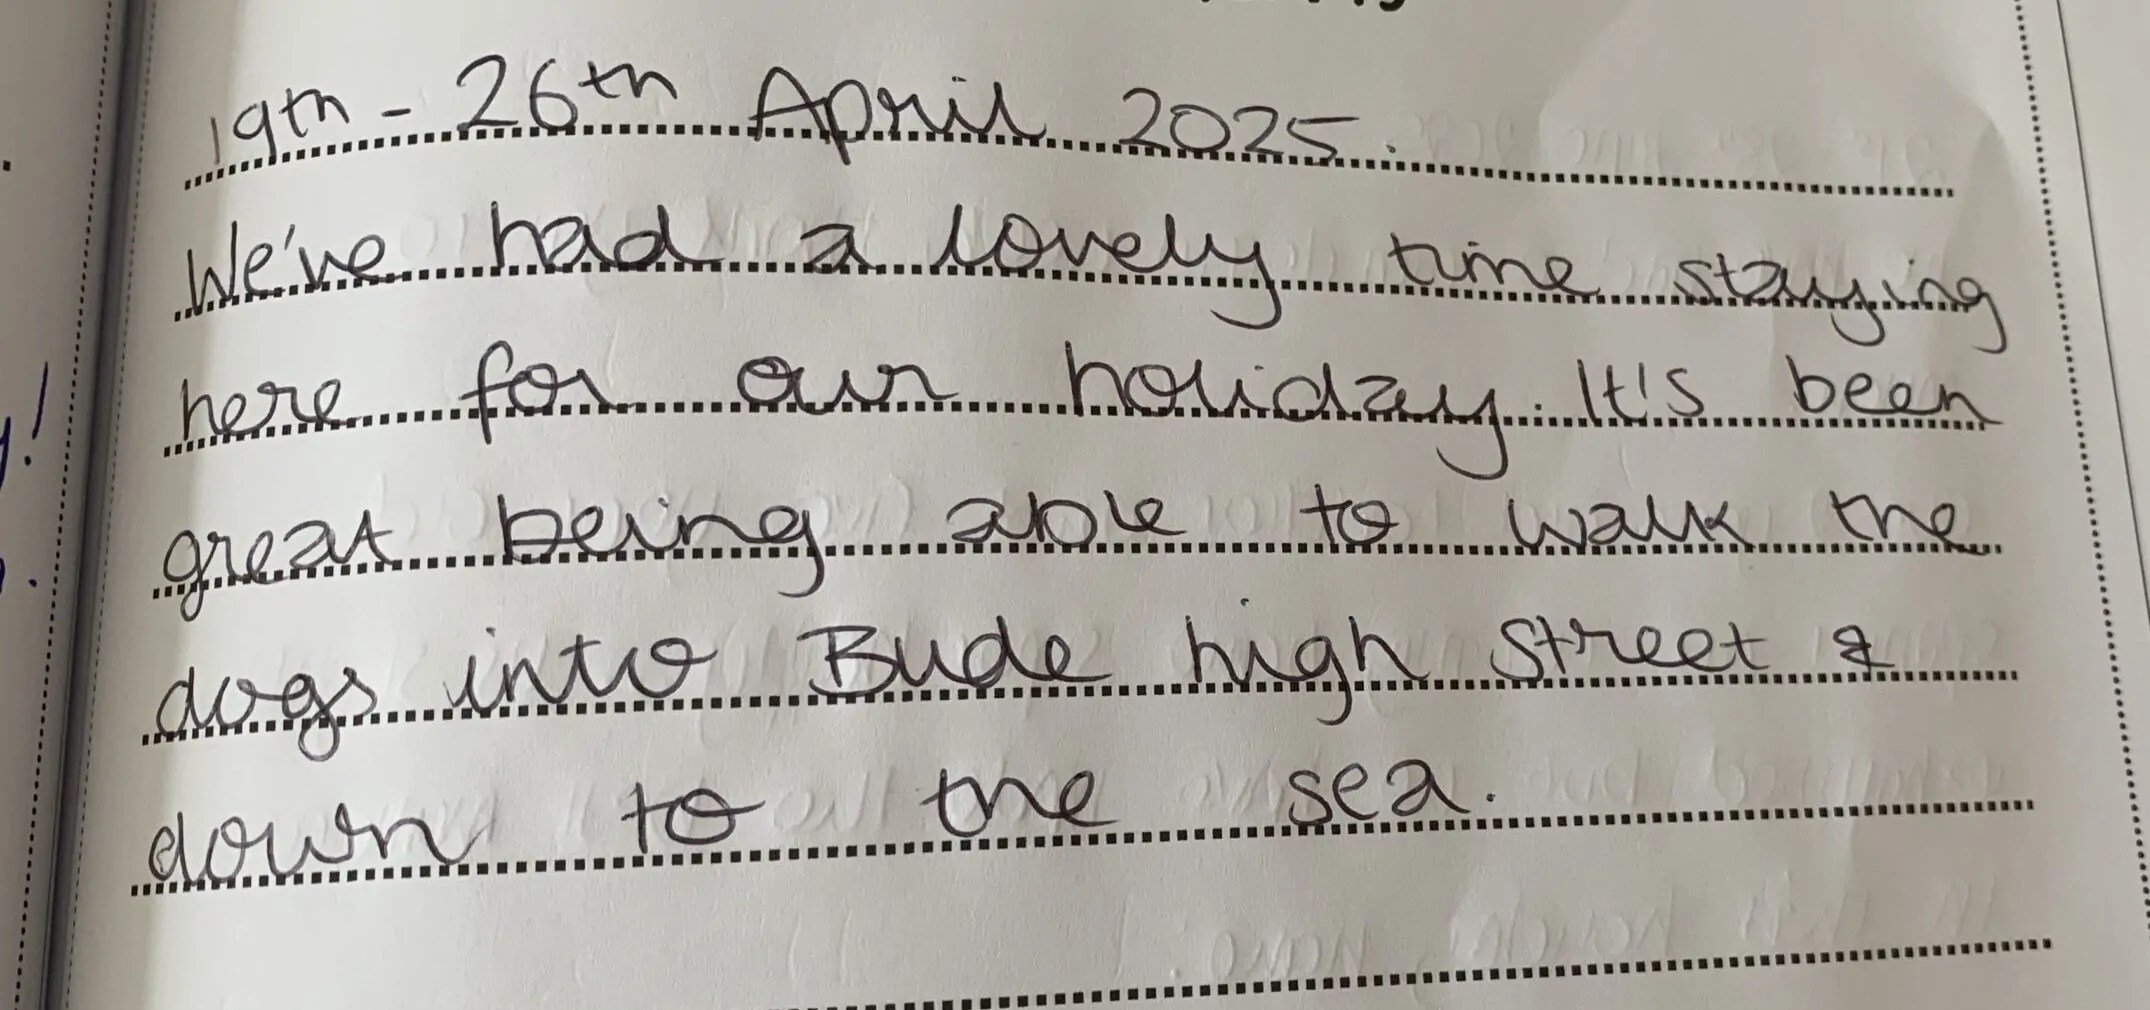 19th - 26th April 2025.
We've had a lovely time staying
here for our holiday. It's been
great being able to walk the
dogs into Bude high street &
down to the sea.